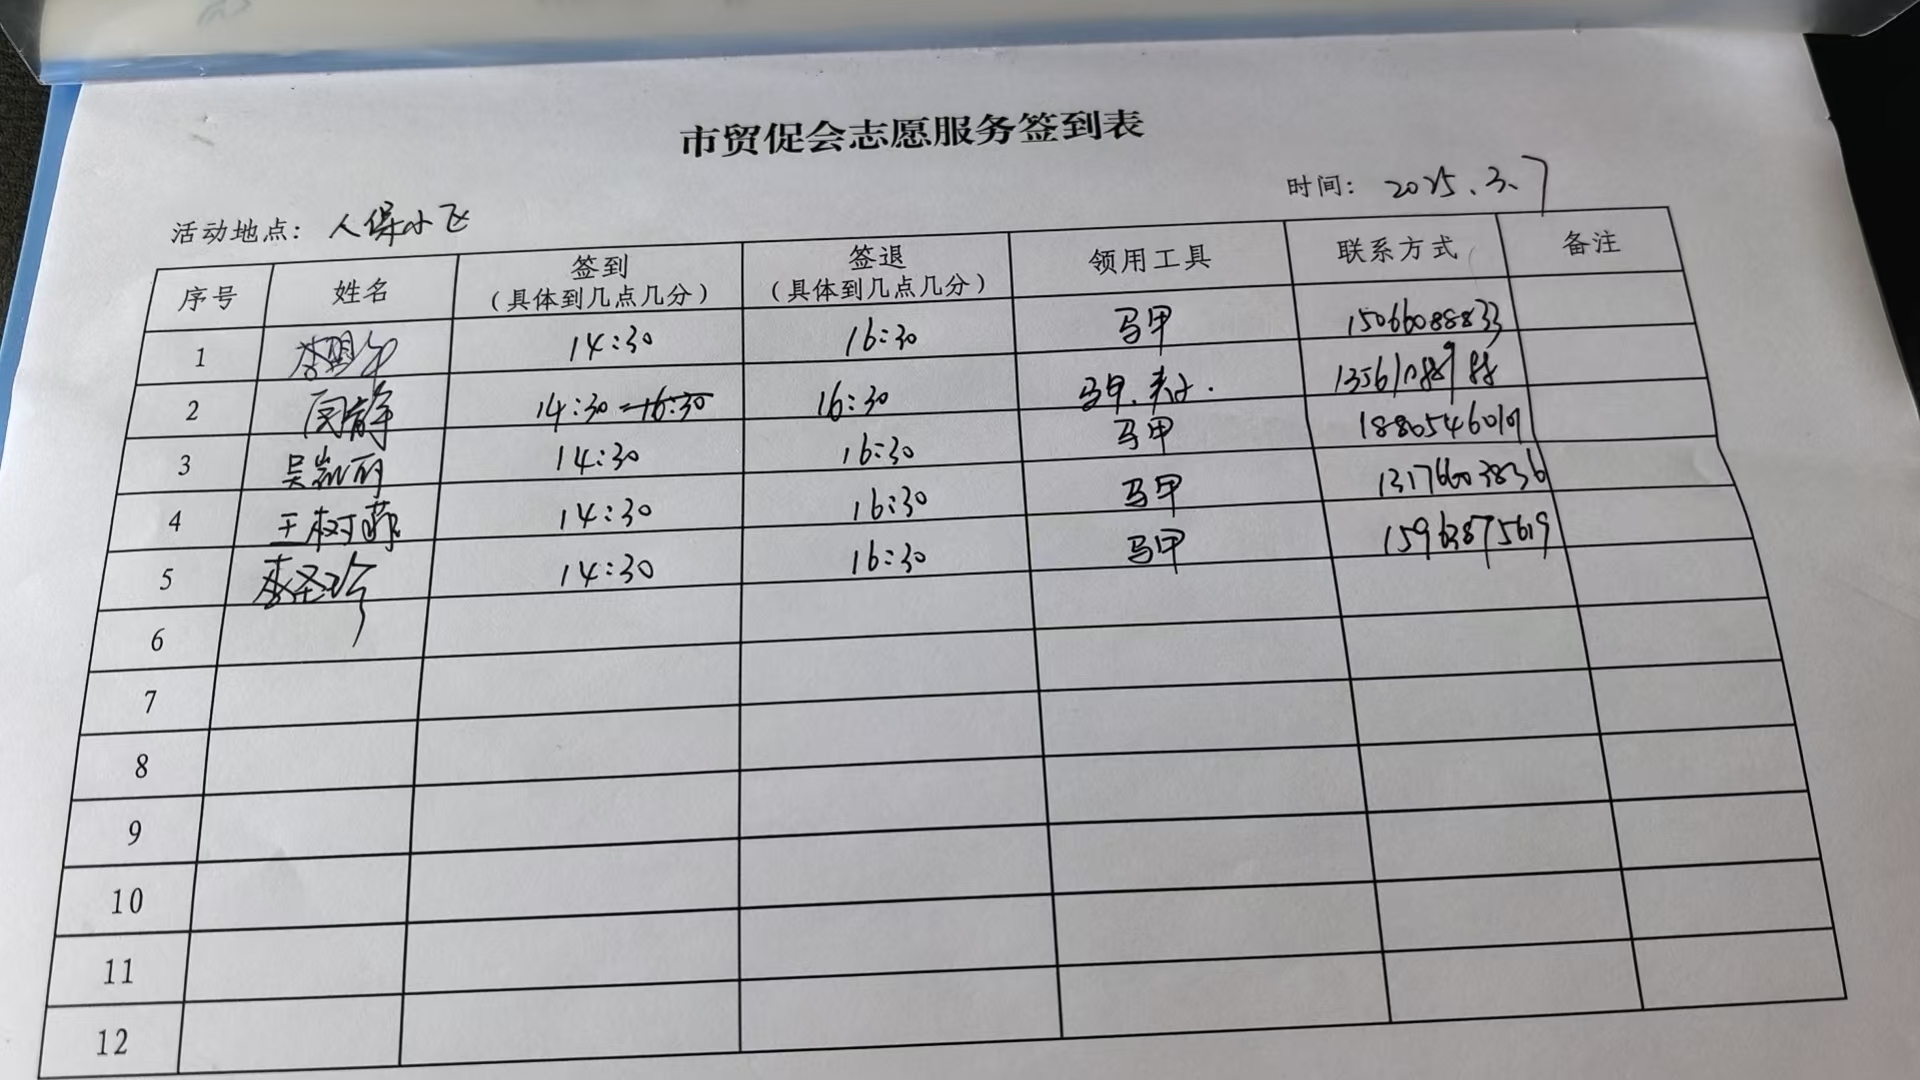 市贸促会志愿服务签到表
时间: 2025.3.7
活动地点: 人保小区
序号 姓名 签到 (具体到几点几分) 签退 (具体到几点几分) 领用工具 联系方式 备注
1 14:30 16:30 马甲 15066088833
2 闵静 14:30 16:30 马甲、夹子.
3 吴凯丽 14:30 16:30 马甲
4 王树 14:30 16:30 马甲 13176603836
5 李圣 14:30 16:30 马甲 15963875619
6
7
8
9
10
11
12